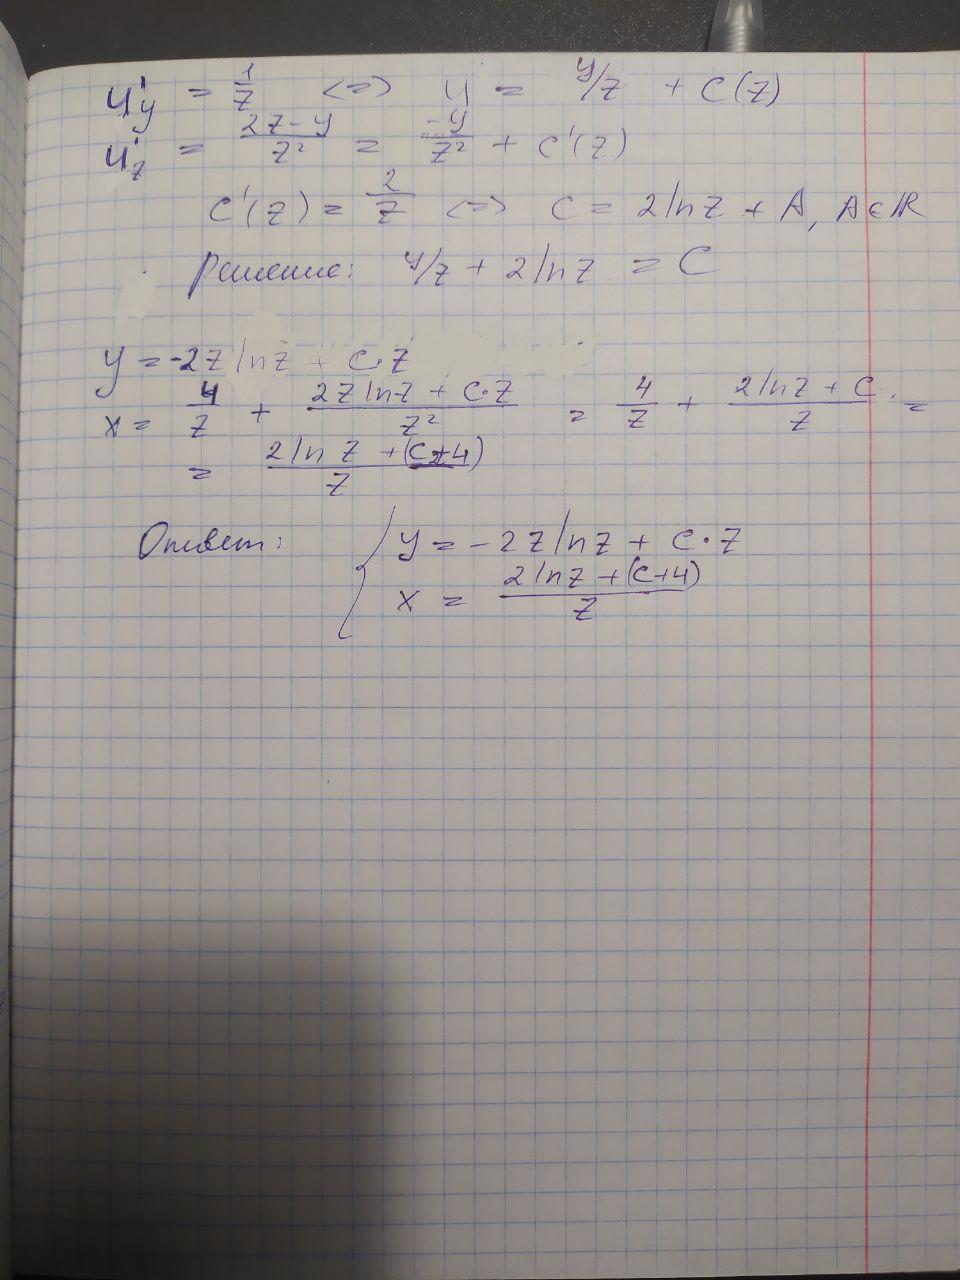 u'y = 1/z <=> u = y/z + C(z)
u'z = (2z-y)/z² = -y/z² + C'(z)
C'(z) = 2/z <=> C = 2lnz + A, A∈ℝ
Решение: y/z + 2lnz = C
y = -2z lnz + C·z
x = 4/z + (2z lnz + C·z)/z² = 4/z + (2lnz + C)/z =
= (2ln z + (C+4))/z
Ответ: { y = -2z lnz + C·z
x = (2lnz + (C+4))/z